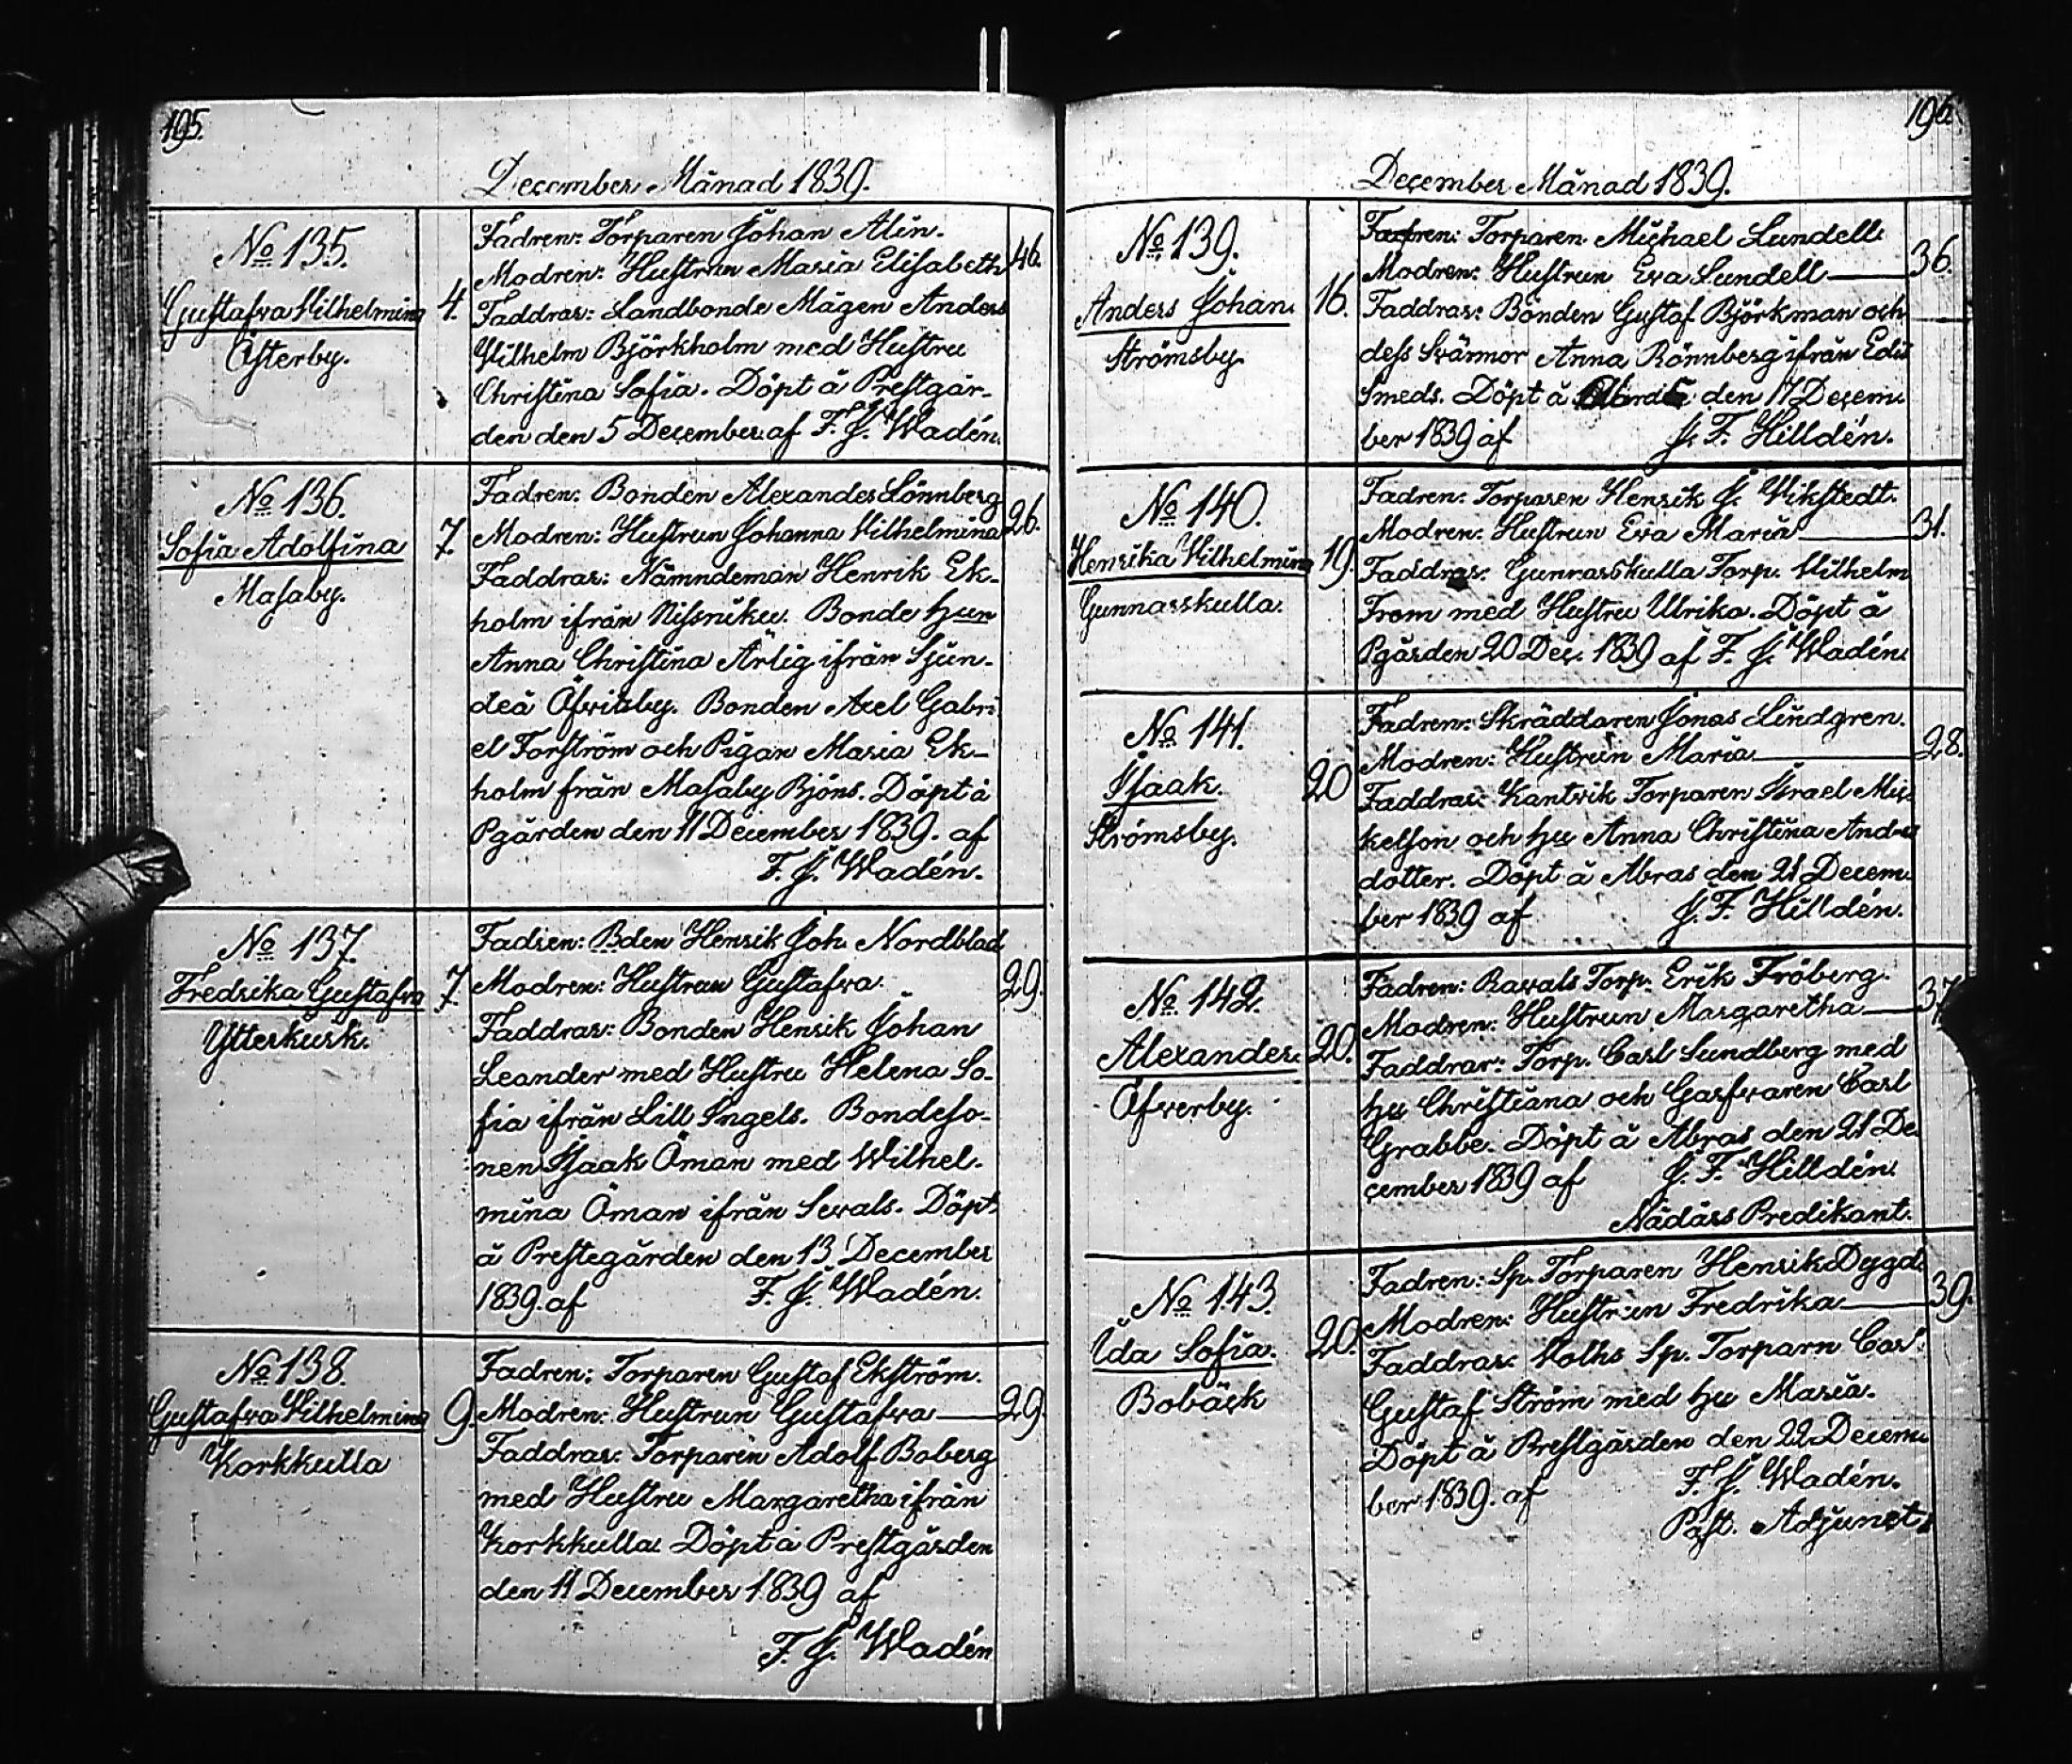 195.
December Månad 1839.
No 135.
Gustafva Vilhelmina
Österby.
4.
Fadren: Torparen Johan Alin.
Modren: Hustrun Maria Elisabeth
46.
Faddrar: Landbonde Mågen Anders
Vilhelm Björkholm med Hustru
Christina Sofia. Döpt å Prestgår-
den den 5 December af F. J. Wadén.
No 136.
Sofia Adolfina
Masaby.
7.
Fadren: Bonden Alexander Lönnberg
Modren: Hustrun Johanna Vilhelmina
26.
Faddrar: Nämndeman Henrik Ek-
holm ifrån Nissniku. Bonde hun
Anna Christina Ärlig ifrån Sjun-
deå Öfvitsby. Bonden Axel Gabri
el Forström och Pigan Maria Ek-
holm från Masaby Bjöns. Döpt å
Pgården den 11 December 1839. af
F. J. Wadén.
No 137.
Fredrika Gustafva
Ytterkurk.
7.
Fadren: Bden Henrik Joh. Nordblad
Modren: Hustrun Gustafva.
29.
Faddrar: Bonden Henrik Johan
Leander med Hustru Helena So-
fia ifrån Lill Ingels. Bondeso-
nen Isaak Öman med Wilhel-
mina Öman ifrån Sevals. Döpt
å Prestegården den 13 December
1839. af F. J. Wadén.
No 138.
Gustafva Vilhelmina
Korkkulla
9.
Fadren: Torparen Gustaf Ekström.
Modren: Hustrun Gustafva
29.
Faddrar: Torparen Adolf Boberg
med Hustru Margaretha ifrån
Korkkulla. Döpt å Prestgården
den 11 December 1839 af
F. J. Wadén
196.
December Månad 1839.
No 139.
Anders Johan.
Strömsby.
16.
Fadren: Torparen Michael Lundell.
Modren: Hustrun Eva Lundell
36.
Faddrar: Bonden Gustaf Björkman och
dess Svärmor Anna Rönnberg ifrån Edis
Smeds. Döpt å den 17 Decem-
ber 1839 af J. F. Hilldén.
No 140.
Henrika Vilhelmina
Gunnarskulla.
19.
Fadren: Torparen Henrik J. Vikstedt.
Modren: Hustrun Eva Maria
31.
Faddrar: Gunnarskulla Torp. Vilhelm
From med Hustru Ulrika. Döpt å
Pgården 20 Dec. 1839 af F. J. Wadén.
No 141.
Isaak.
Strömsby.
20
Fadren: Skräddaren Jonas Lindgren.
Modren: Hustrun Maria
28.
Faddrar: Kantvik Torparen Israel Mic-
kelson och hu Anna Christina Anders
dotter. Döpt å Abras den 21 Decem-
ber 1839 af J. F. Hilldén.
No 142.
Alexander.
Öfverby.
20.
Fadren: Ravals Torp. Erik Fröberg.
Modren: Hustrun Margaretha
37.
Faddrar: Torp. Carl Sundberg med
hu Christiana och Garfvaren Carl
Grabbe. Döpt å Abras den 21 De-
cember 1839 af J. F. Hilldén.
Nådårs Predikant.
No 143.
Ida Sofia.
Bobäck
20.
Fadren: Sp. Torparen Henrik Dygd.
Modren: Hustrun Fredrika
39.
Faddrar: Volks Sp. Torparn Carl
Gustaf Ström med hu Maria.
Döpt å Prestgården den 22 Decem-
ber 1839. af F. J. Wadén.
Past. Adjunct.